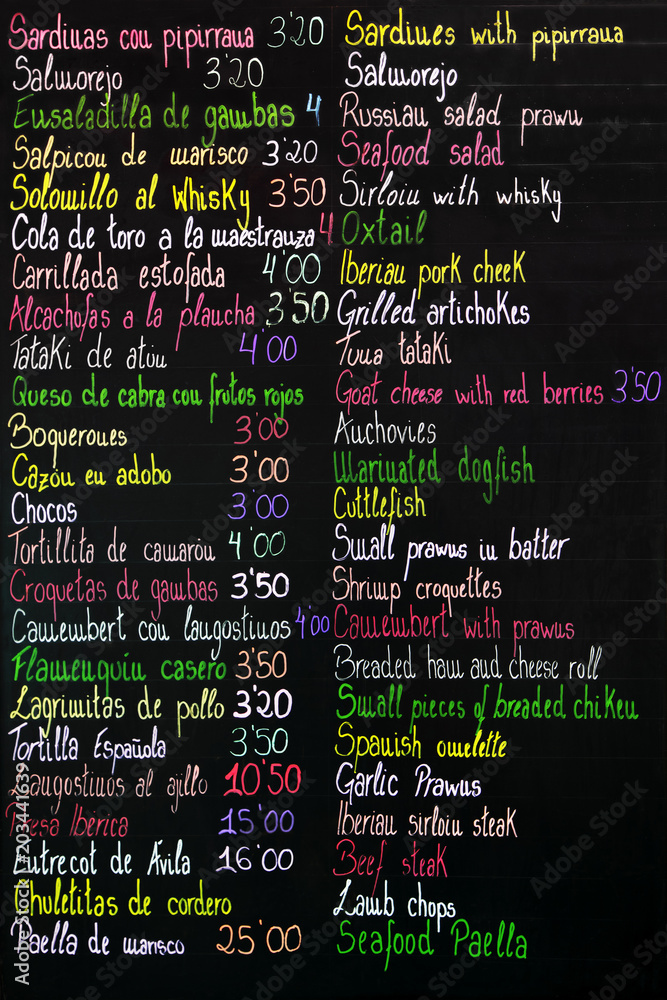 Sardinas con pipirrana 3'20
Salmorejo 3'20
Ensaladilla de gambas 4
Salpicon de marisco 3'20
Solomillo al Whisky 3'50
Cola de toro a la maestranza 4
Carrillada estofada 4'00
Alcachofas a la plancha 3'50
Tataki de atún 4'00
Queso de cabra con frutos rojos
Boquerones 3'00
Cazón en adobo 3'00
Chocos 3'00
Tortillita de camarón 4'00
Croquetas de gambas 3'50
Camembert con langostinos 4'00
Flamenquín casero 3'50
Lagrimitas de pollo 3'20
Tortilla Española 3'50
Langostinos al ajillo 10'50
Presa Ibérica 15'00
Entrecot de Ávila 16'00
Chuletitas de cordero
Paella de marisco 25'00
Sardines with pipirrana
Salmorejo
Russian salad prawn
Seafood salad
Sirloin with whisky
Oxtail
Iberian pork cheek
Grilled artichokes
Tuna tataki
Goat cheese with red berries 3'50
Anchovies
Marinated dogfish
Cuttlefish
Small prawns in batter
Shrimp croquettes
Camembert with prawns
Breaded ham and cheese roll
Small pieces of breaded chiken
Spanish omelette
Garlic Prawns
Iberian sirloin steak
Beef steak
Lamb chops
Seafood Paella
Adobe Stock | #203441639